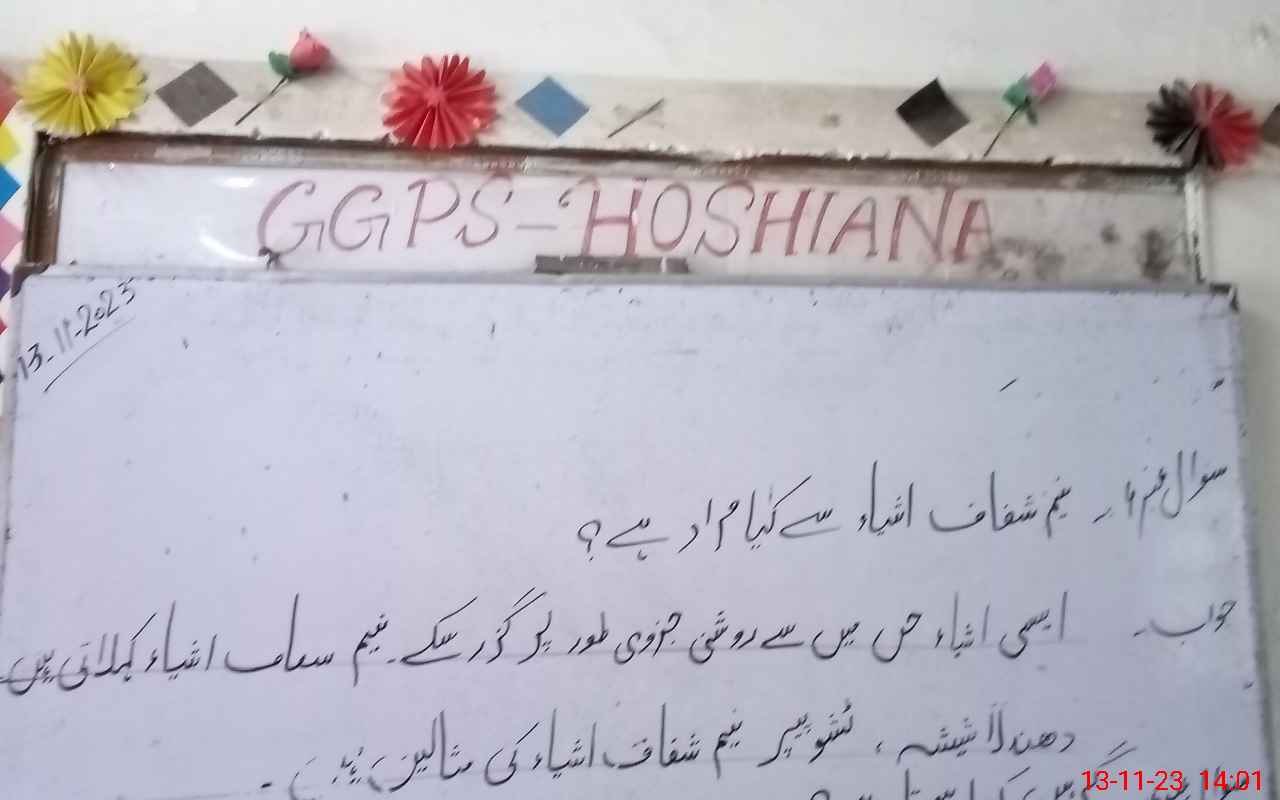 GGPS-HOSHIANA
13-11-2023
سوال نمبر ۲۔ نیم شفاف اشیاء سے کیا مراد ہے؟
جواب۔ ایسی اشیاء جس میں سے روشنی جزوی طور پر گزر سکے۔ نیم شفاف اشیاء کہلاتی ہیں۔
دھندلا شیشہ ، ٹشو پیپر نیم شفاف اشیاء کی مثالیں ہیں۔
13-11-23 14:01